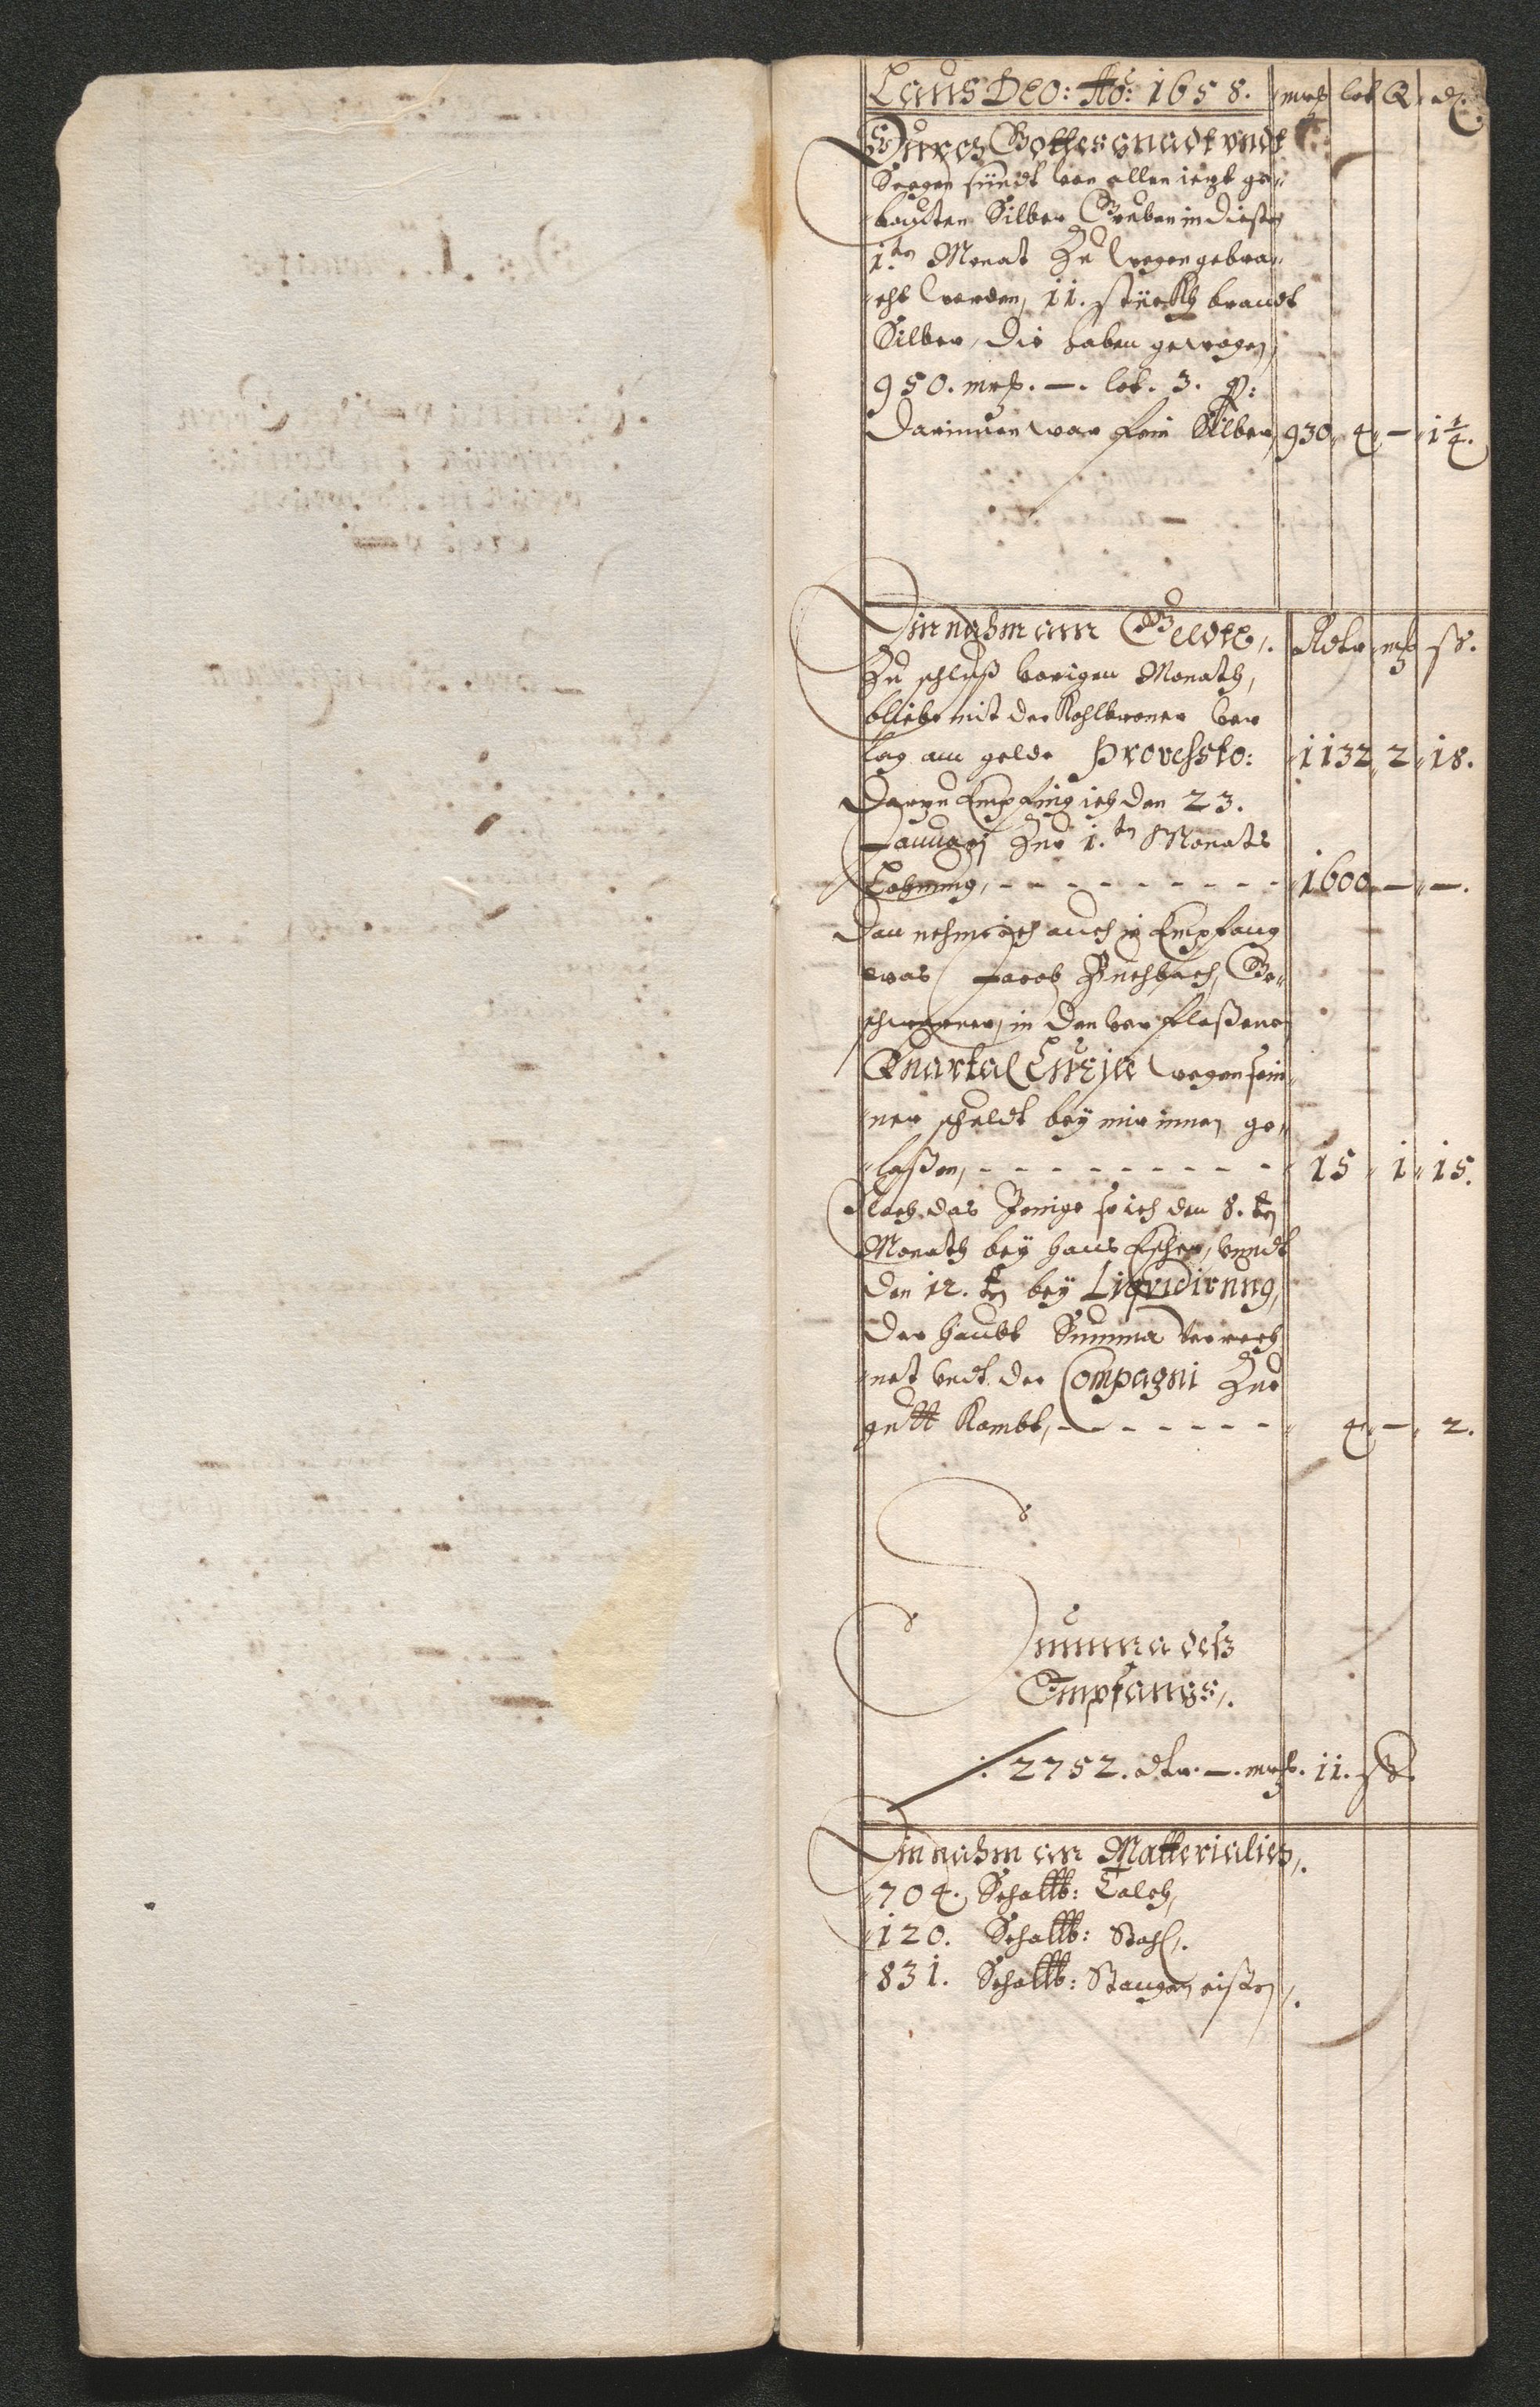 Laus DEO: Ao: 1658. mrß lot Q. d.
Durch Gottes gnadt vndt
Seegen sündt von allen ietzt ge-
bauten Silber Gruben in diesen
1.ten Monat Zu wegen gebra-
cht worden, 11. stückh brandt
Silber, die haben gewogen,
950. mrß. —. lot. 3. q:
Darinnen war fein Silber, 930. 4. — 1 1/4.
Einnahm ann Geldte. Rdtr mß ß.
Zu schluß vorigen Monaths,
bliebe mit der Kohlbrenner ver
lag am gelde Provessto: 1132 2 18.
Darzu Empfing ich den 23.
Januarj Zur 1.ten Monats
Lohnung, - - - - - - - - - 1600 — —.
Dan nehme ich auch in Empfang
was Jacob Buchbach, Ge-
schworner, in den verfloßenen
Quartal Luciæ wegen sein-
ner scheldt bey mir innen ge-
laßen, - - - - - - - - - 15 1 15.
Noch das Jenige so ich den 8.ten
Monath bey hans Escher, vnndt
den 12.ten bey Liqvidirung,
der haubt Summa verrech
net vndt der Compagni Zur
gutt kombt, - - - - - - - 4 — 2.
Summa deß
Empfangs.
: 2752. dtr. —. mrß. 11. ß.
Einnahm an Matterialien.
704. Schaltt: Talch,
120. Schaltt: Stahl.
831. Schaltt: Stangen eißen.